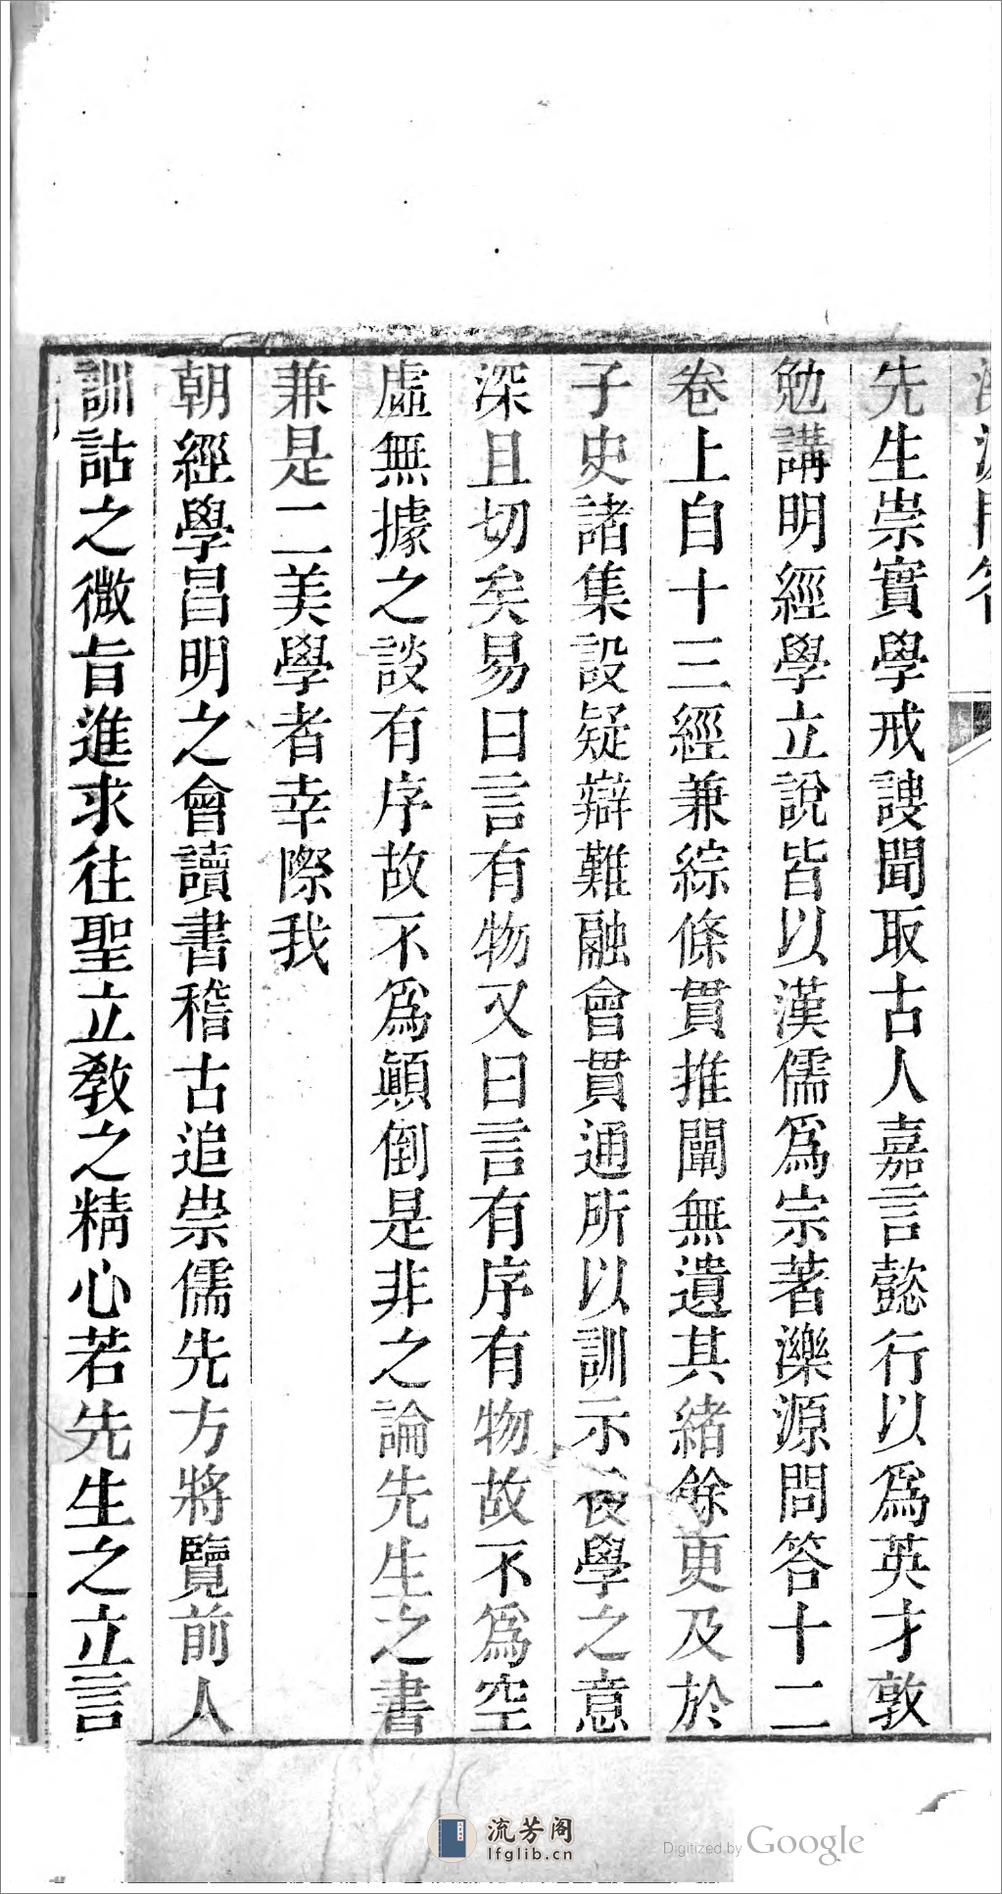 先生崇實學戒謏聞取古人嘉言懿行以爲英才敦
勉講明經學立說皆以漢儒爲宗著濼源問答十二
卷上自十三經兼綜條貫推闡無遺其緒餘更及於
子史諸集設疑辯難融會貫通所以訓示後學之意
深且切矣易曰言有物又曰言有序有物故不爲空
虛無據之談有序故不爲顚倒是非之論先生之書
兼是二美學者幸際我
朝經學昌明之會讀書稽古追崇儒先方將覽前人
訓詁之微旨進求往聖立敎之精心若先生之立言
流芳阁
lfglib.cn
Digitized by Google